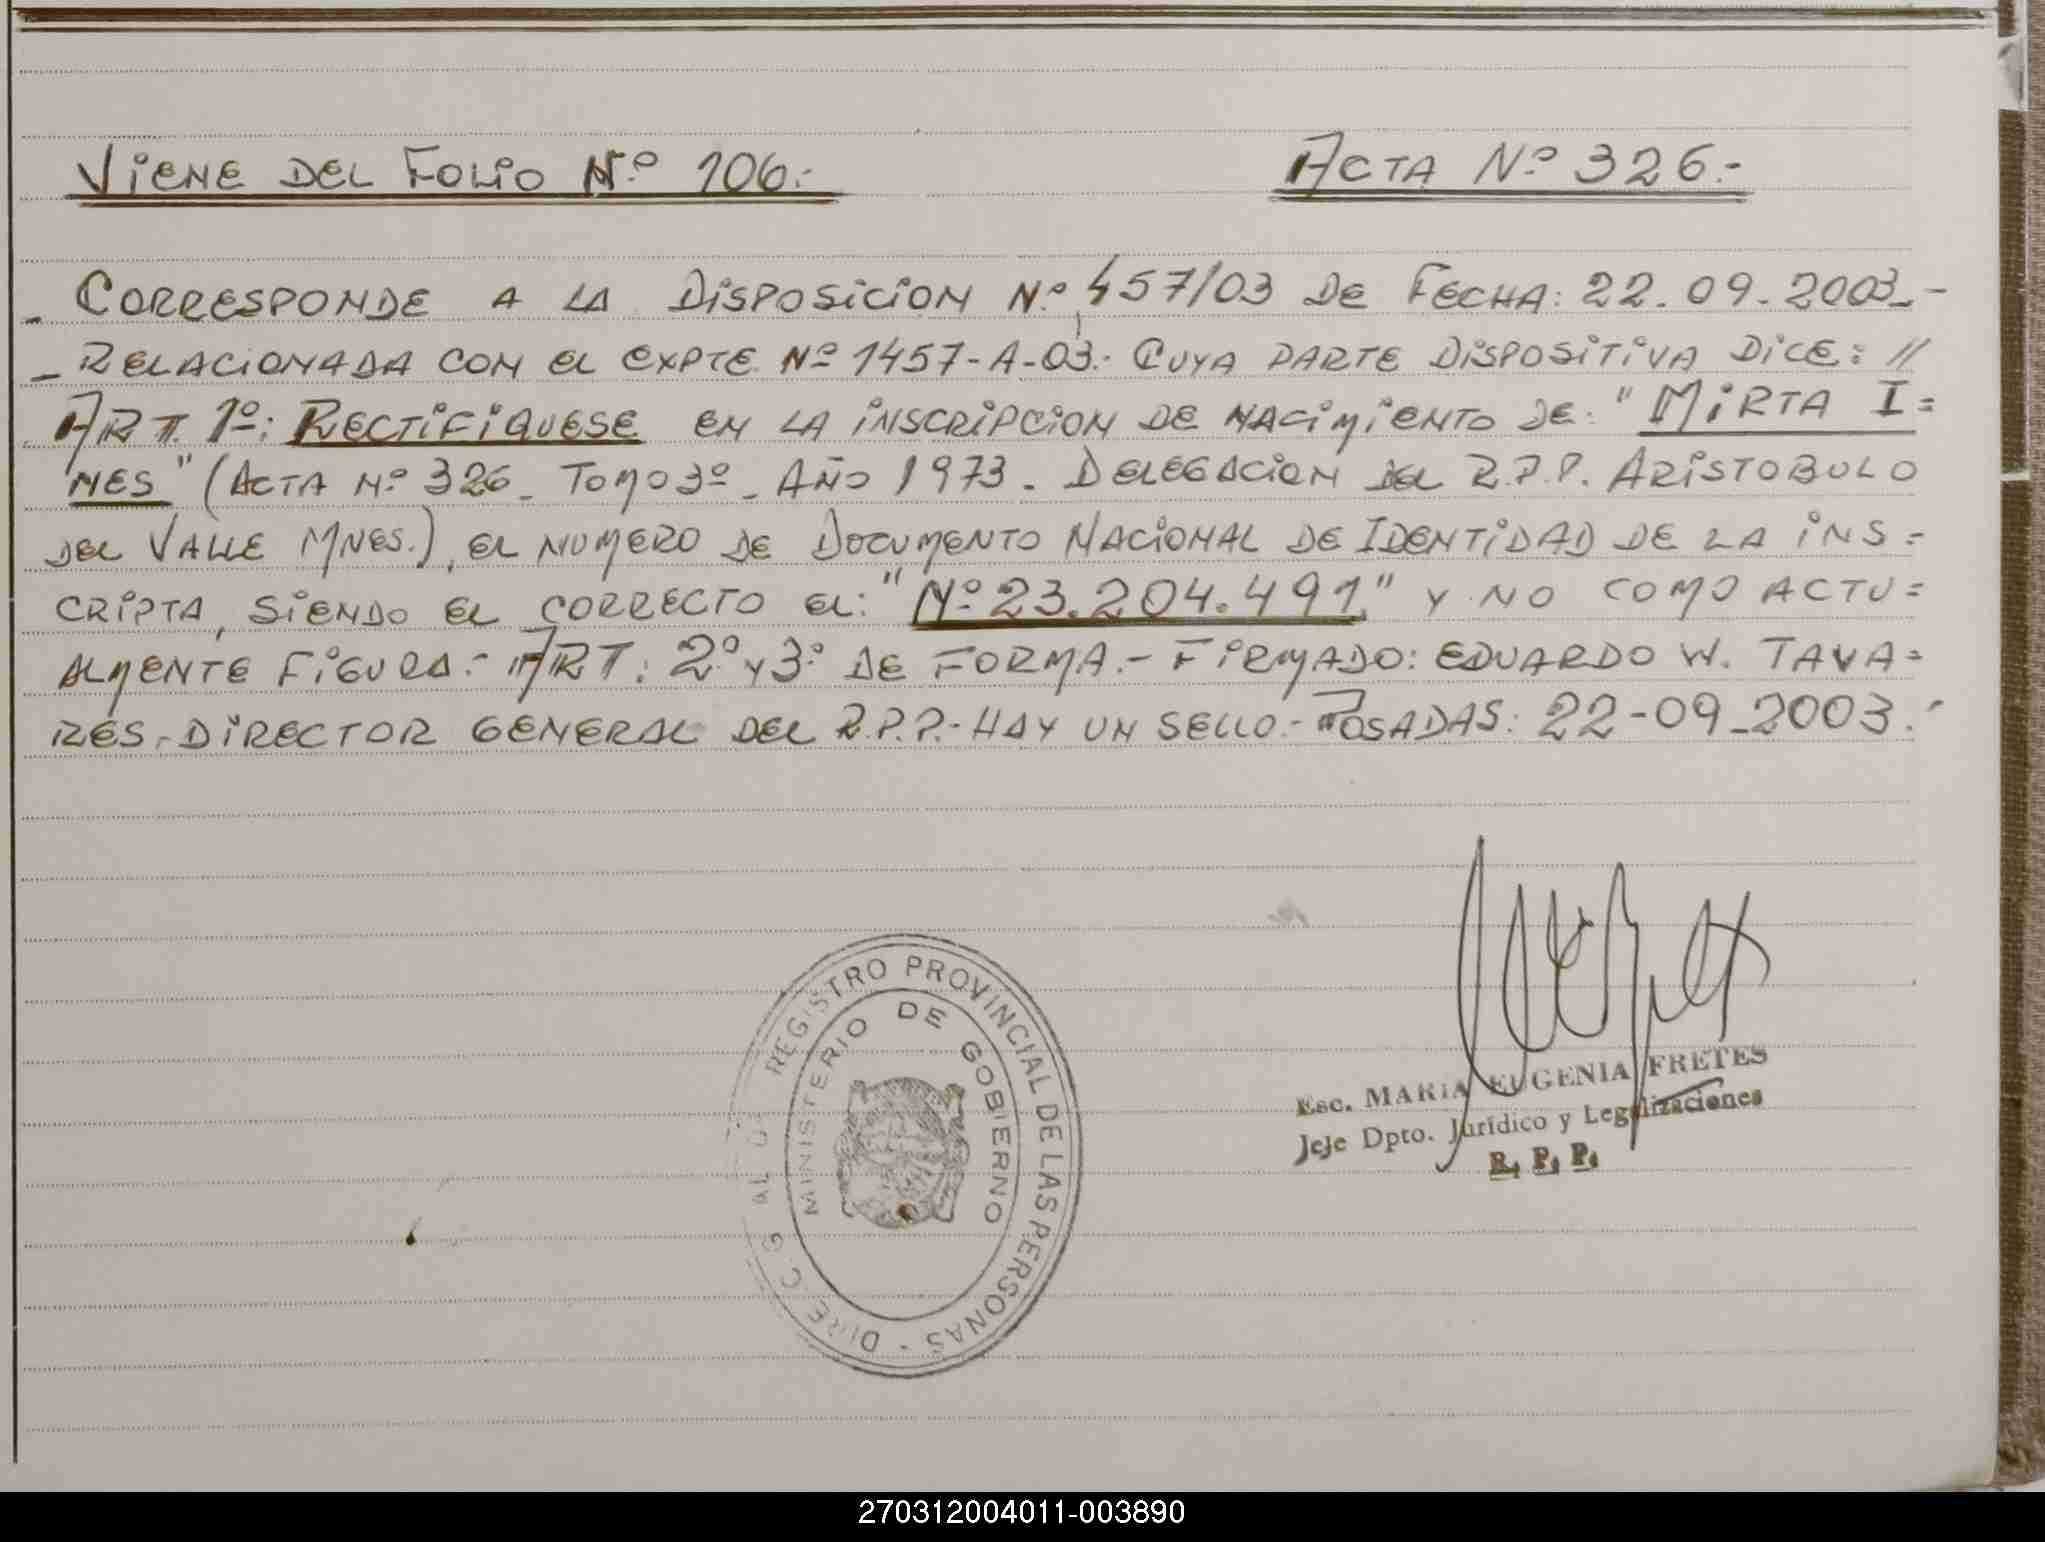 VIENE DEL FOLIO Nº 106.-
ACTA Nº 326.-
_ CORRESPONDE A LA DISPOSICION Nº 457/03 DE FECHA: 22.09.2003.-
_ RELACIONADA CON EL EXPTE Nº 1457-A-03.- CUYA PARTE DISPOSITIVA DICE: //
ART. 1º: RECTIFIQUESE EN LA INSCRIPCION DE NACIMIENTO DE: "MIRTA I=
NES" (ACTA Nº 326_ TOMO 3º_ AÑO 1973. DELEGACION DEL R.P.P. ARISTOBULO
DEL VALLE MNES.), EL NUMERO DE DOCUMENTO NACIONAL DE IDENTIDAD DE LA INS=
CRIPTA, SIENDO EL CORRECTO EL: "Nº 23.204.491" Y NO COMO ACTU=
ALMENTE FIGURA.- ART. 2º Y 3º DE FORMA.- FIRMADO: EDUARDO W. TAVA=
RES.DIRECTOR GENERAL DEL R.P.P.- HAY UN SELLO.- POSADAS: 22-09-2003.-
REGISTRO PROVINCIAL DE LAS PERSONAS -
MINISTERIO DE GOBIERNO
Esc. MARIA EUGENIA FRETES
Jefe Dpto. Jurídico y Legalizaciones
R. P. P.
270312004011-003890